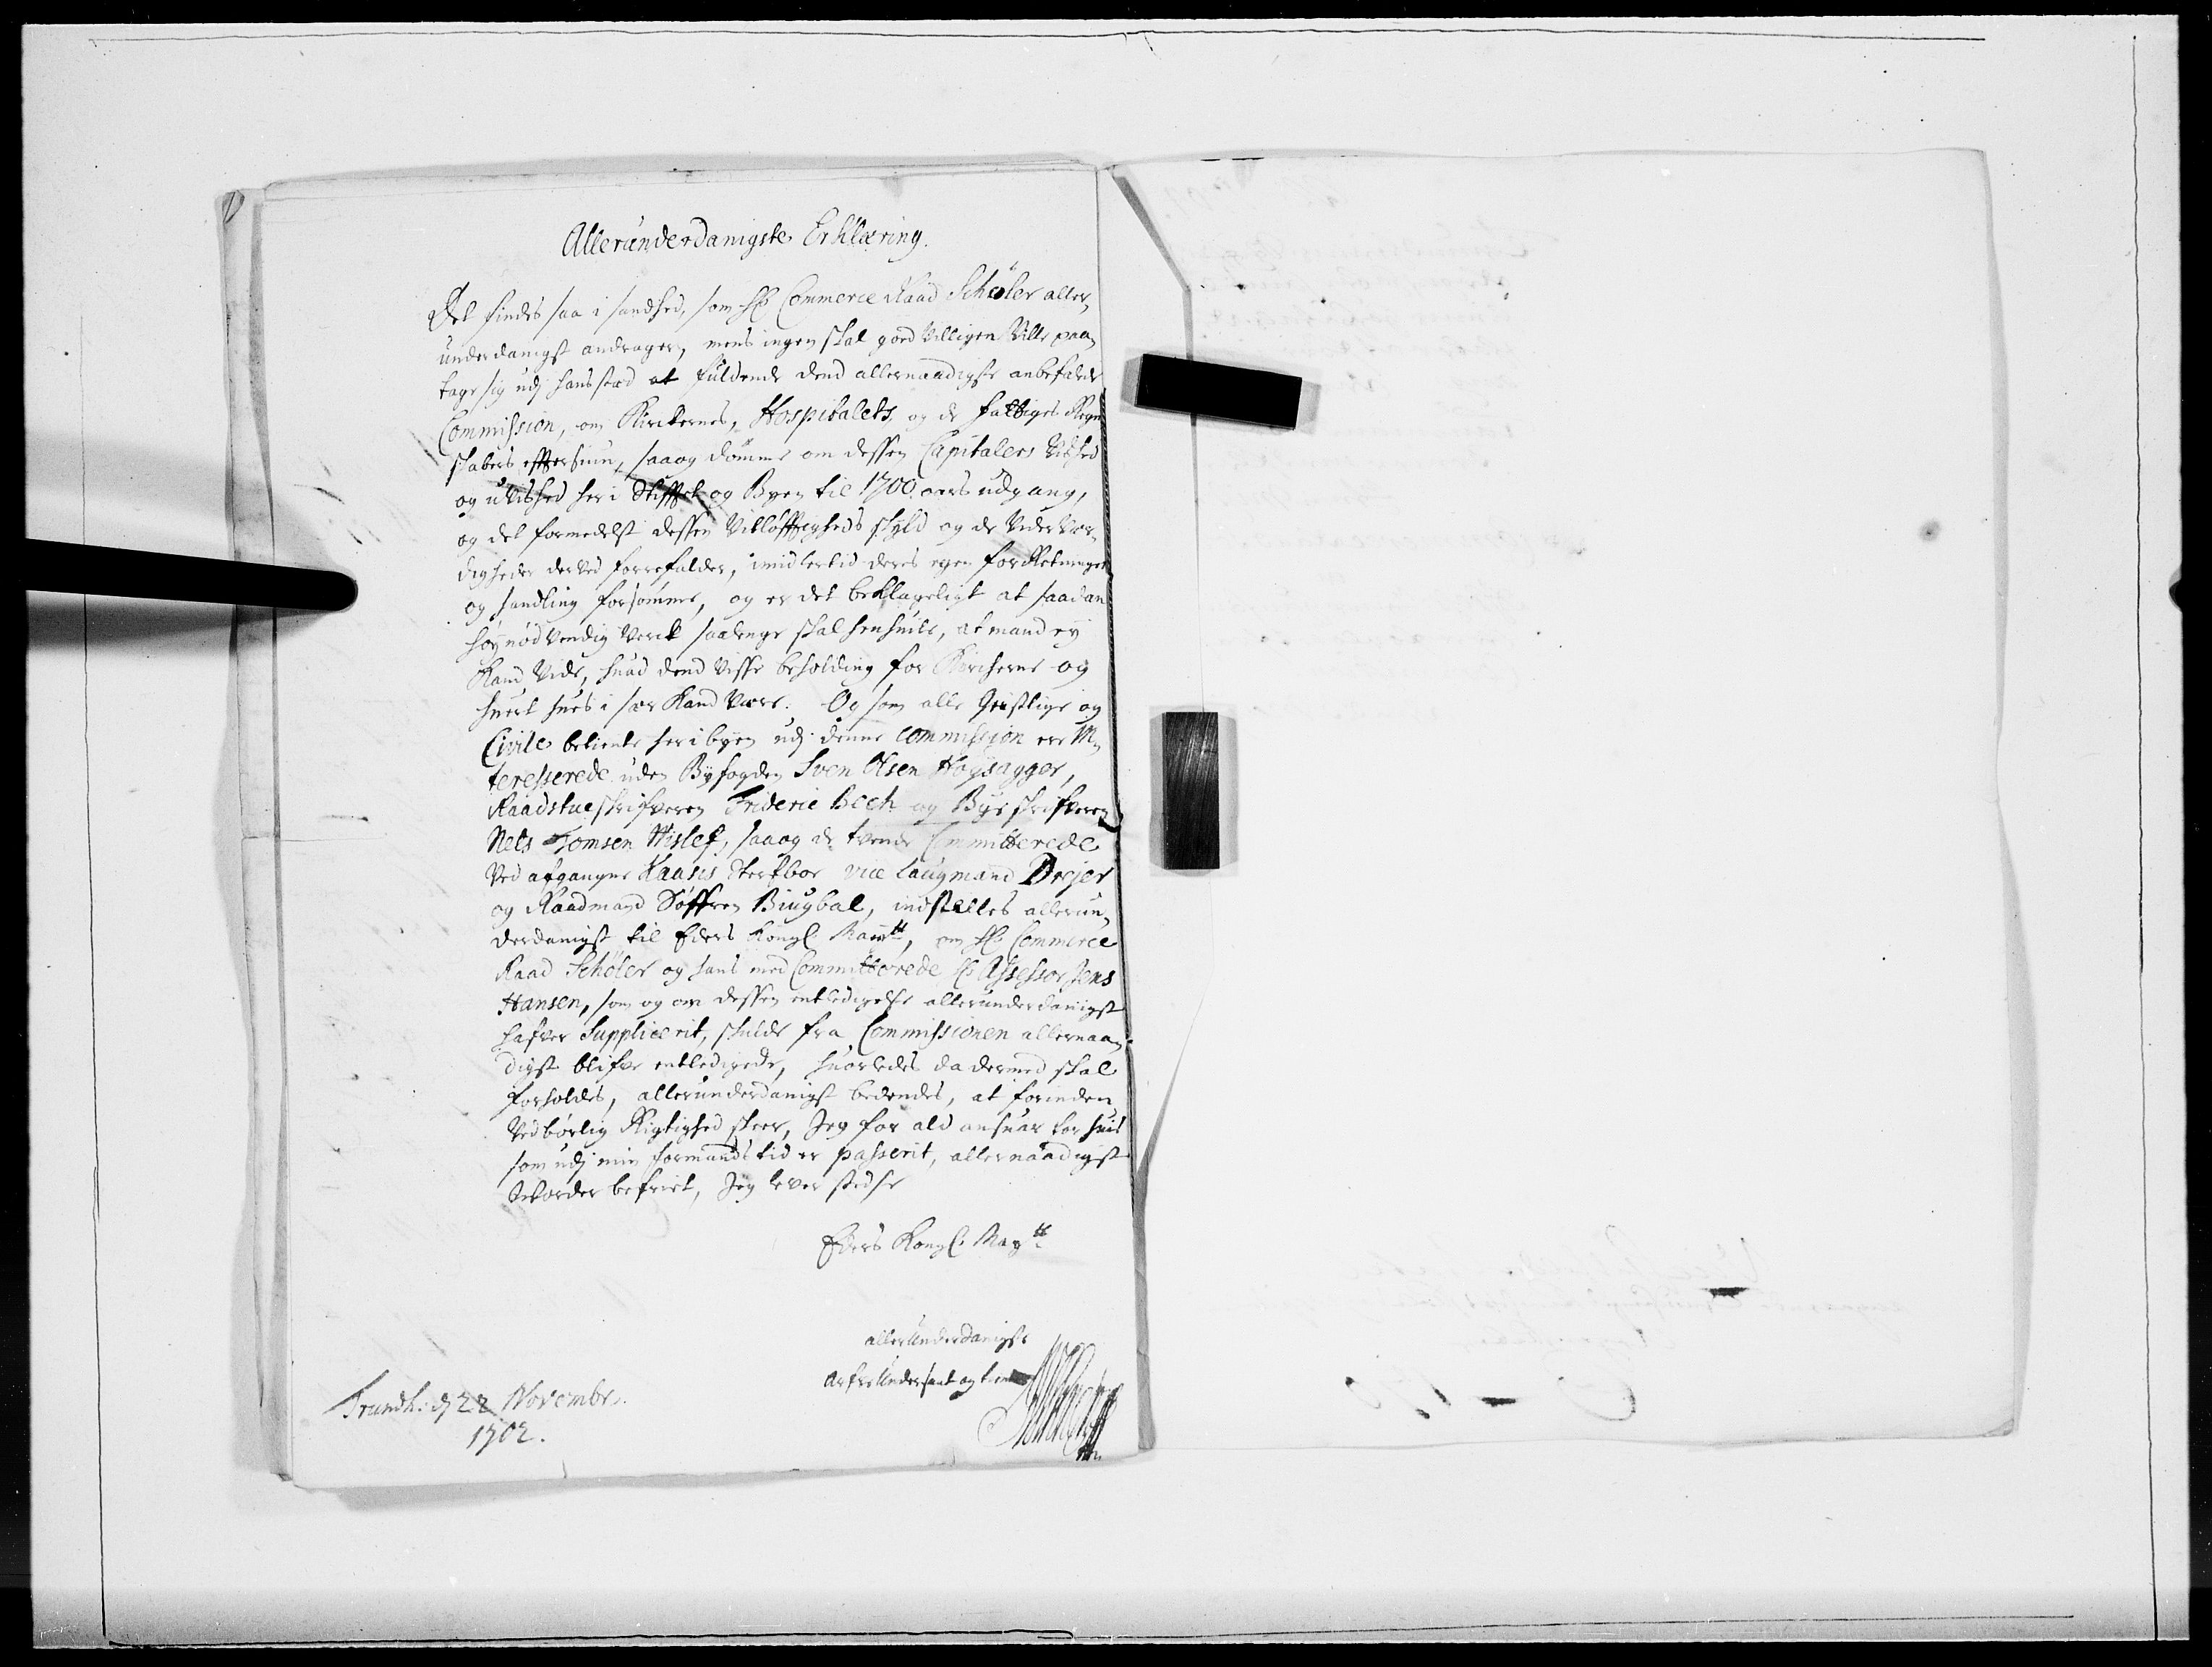 Allerunderdanigste Erklæring.
Det findes saa i sandhed, som Hr Commerce Raad Schøler aller-
underdanigst andrager, mens ingen skal goed villigen ville paa-
tage sig udj hans stæd at fuldende dend allernaadigste anbefalede
Commission, om Kirckernes, Hospitalets og de fattiges Regn
skabers eftersiun, saa og dømme om dessen Capitalers Vished
og uvished her i Stifftet og Byen til 1700 aars udgang,
og det formedelst dessen Vitløfftigheds skyld og de Widervær-
digheder derved forrefalder, imidlertid deres egen forRetninger
og handling forsømme, og er det beklageligt at saadan
høynødvendig Verck saalenge skal henhvile, at mand ey
Kand Vide, huad dend visse beholding for Kircherne og
huert hues i sær Kand være. Og som alle Geistlige og
Civile betiente her i byen udj denne commission ere In-
teresserede uden Byfogden Sven Olsen Høysagger,
Raadstueskrifveren Frideric Bech og Byeskrifveren
Nels Tomsen Wislef, saa og de tvende Committerede
Ved afgangne Kaasis sterfboe vice Laugmand Drejer
og Raadmand Søffren Biugbal, indstelles allerun-
derdanigst til Eders Kongl. Mayst, om Hr Commerce
Raad Schøler og hans med Committerede Hr Assessor Jens
Hansen, som og om dessen entledigelse allerunderdanigst
hafver Supplicerit, skulde fra Commissionen allernaa-
digst blifve entledigede, huorledes da dermed skal
forholdes, allerunderdanigst bedendes, at forinden
Vedbørlig Rigtighed skeer, Jeg for ald ansuar for huis
som udj min formands tid er passerit, allernaadigst
worder befriet, Jeg lever stedse
Eders Kongl. Mayst
allerUnderdanigste
ArfveUndersaat og
Trundh: dn 22 Novembr.
1702.